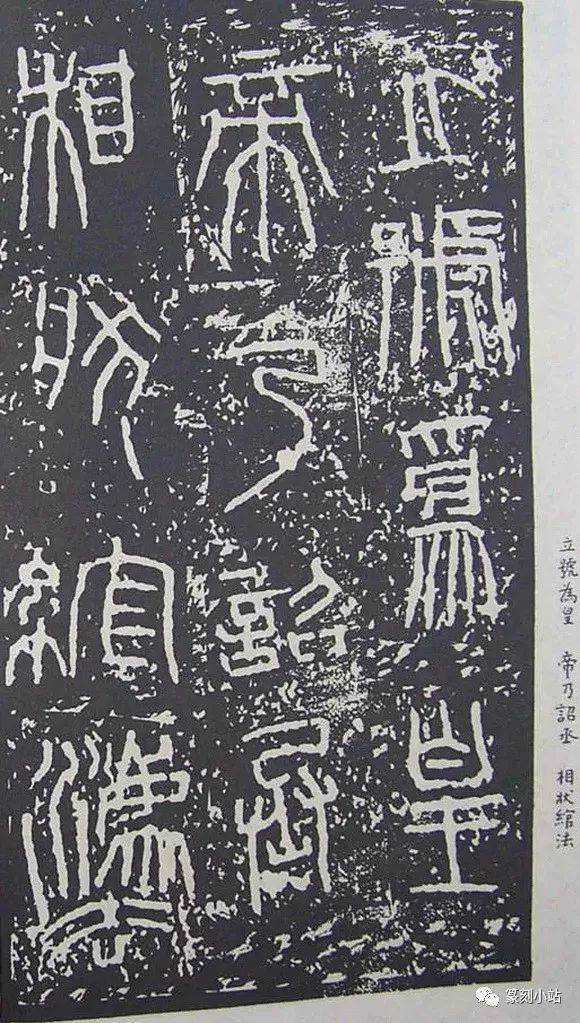 立號為皇
帝乃詔丞
相狀綰灋
立號為皇 帝乃詔丞 相狀綰法
篆刻小站